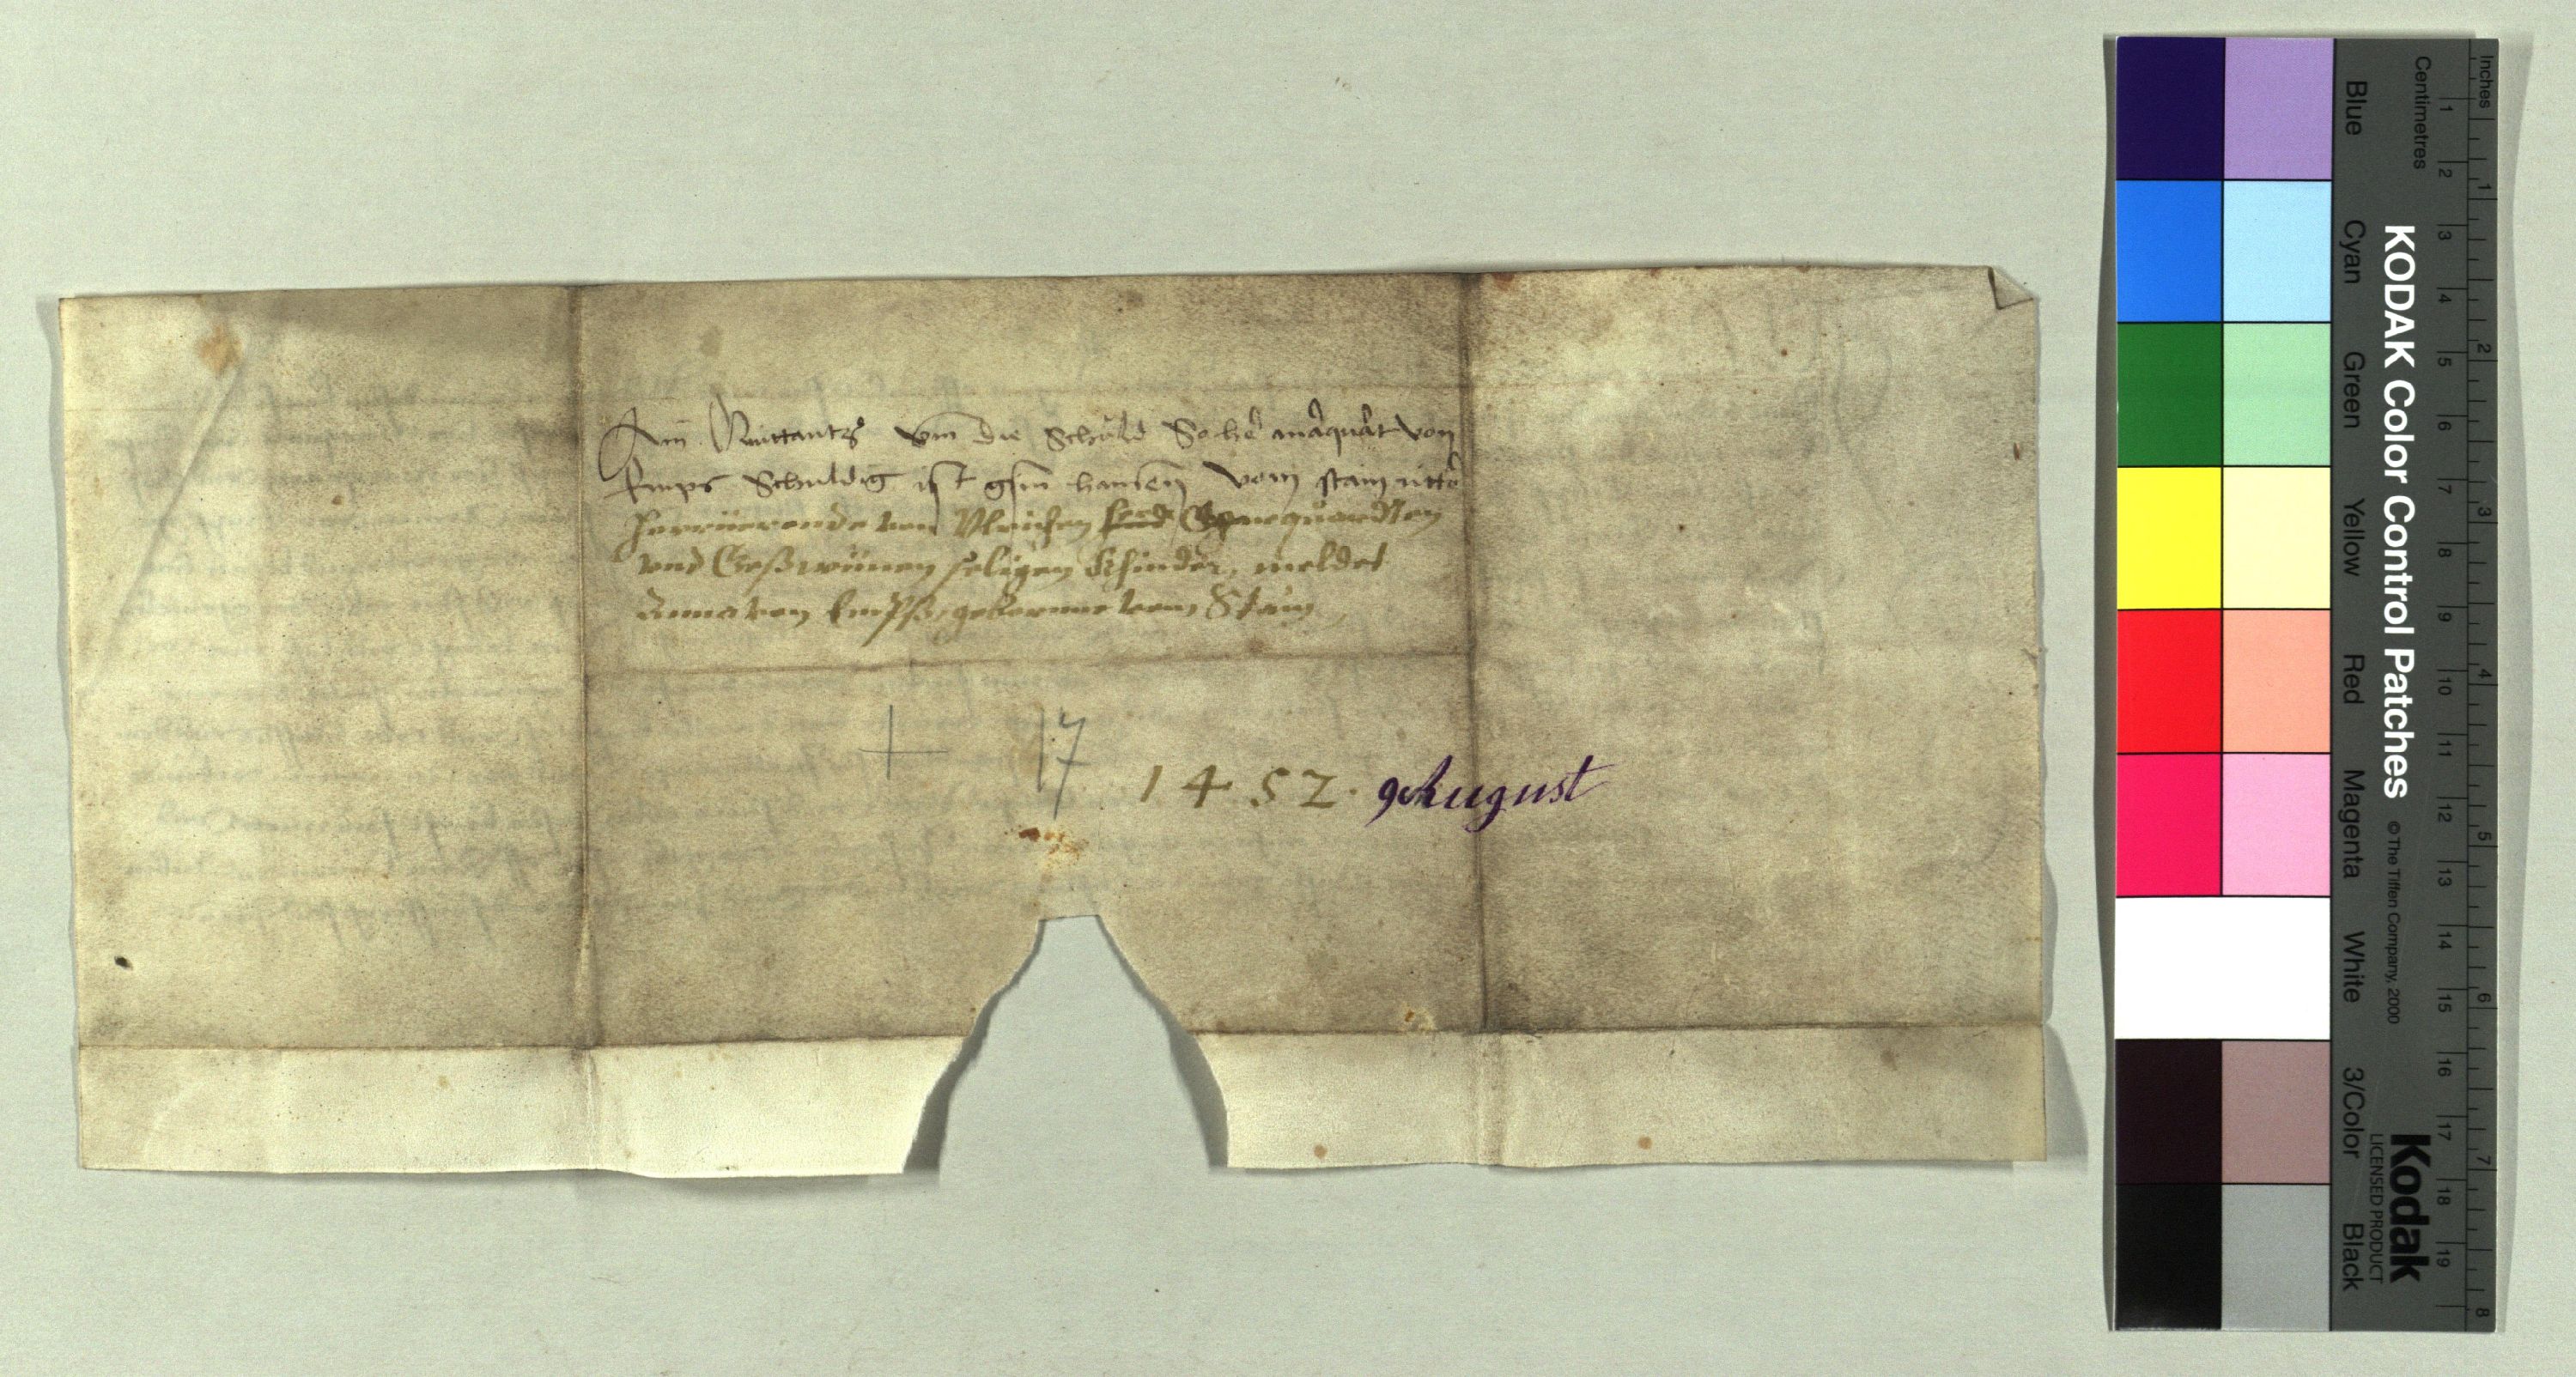 Ain Quittantz vm die Schuld So her marquart von
Emps Schuldig ist gsin hansen vom stain ritter
herrüerende von Ulrichen und Marquardten
und Geßwinen seligen Khinder, meldet
Anna von Embß, geborne vom Stain
+ 17
1452. 9 August
KODAK Color Control Patches
© The Tiffen Company, 2000
Kodak
LICENSED PRODUCT
Inches
1 2 3 4 5 6 7 8
Centimetres
1 2 3 4 5 6 7 8 9 10 11 12 13 14 15 16 17 18 19
Blue Cyan Green Yellow Red Magenta White 3/Color Black